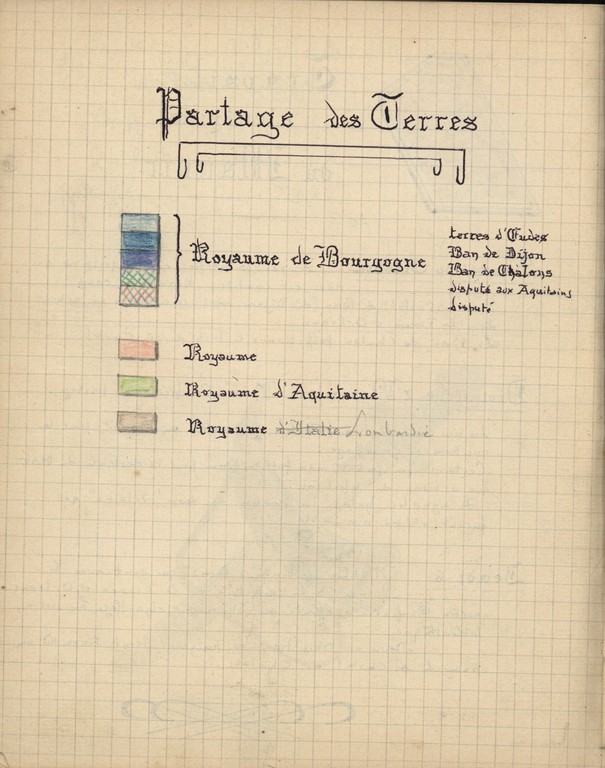 Partage des Terres
Royaume de Bourgogne
terres d'Eudes
Ban de Dijon
Ban de Chalons
disputé aux Aquitains
disputé
Royaume
Royaume d'Aquitaine
Royaume d'Italie Lombardie